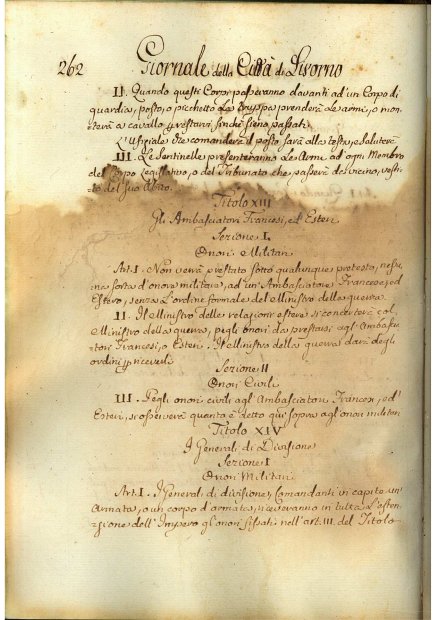 262 Giornale della Città di Livorno
II. Quando questi Corpi passeranno davanti ad'un Corpo di
guardia, posto, o picchetto La truppa prenderà Le armi, o mon,
terà a cavallo p restarvi finchè sieno passati.
L'Ufiziale che comanderà il posto sarà alla testa, e saluterà
III. Le Sentinelle presenteranno Le Armi ad ogni Membro
del Corpo Legislativo, o del Tribunato che passerà da vicino, vesti,
to del suo Abito.
Titolo XIII
Gli Ambasciatori Francesi, e Esteri
Sezione I.
Onori Militari
Art. I. Non verrà prestato sotto qualunque pretesto, nessu,
na sorta d'onore militare, ad un' Ambasciatore Francese, ed
Estero, senza L'ordine formale del Ministro della guerra.
II. Il Ministro delle relazioni estere si concerterà col,
Ministro della guerra, p gli onori da prestarsi agl'Ambascia,
tori Francesi, o Esteri. Il Ministro della guerra darà degli
ordini p riceverli
Sezione II
Onori Civili
III. Pegli onori civili agl'Ambasciatori Francesi, ed'
Esteri, si osserverà quanto è detto quì sopra agl'onori militari
Titolo XIV
I Generali di Divisione
Sezione I
Onori Militari
Art. I. I Generali di divisione, Comandanti in capite un'
Armata, o un corpo d'armata, riceveranno in tutta L'esten,
zione dell'Impero gl'onori fissati nell'art. III del Titolo